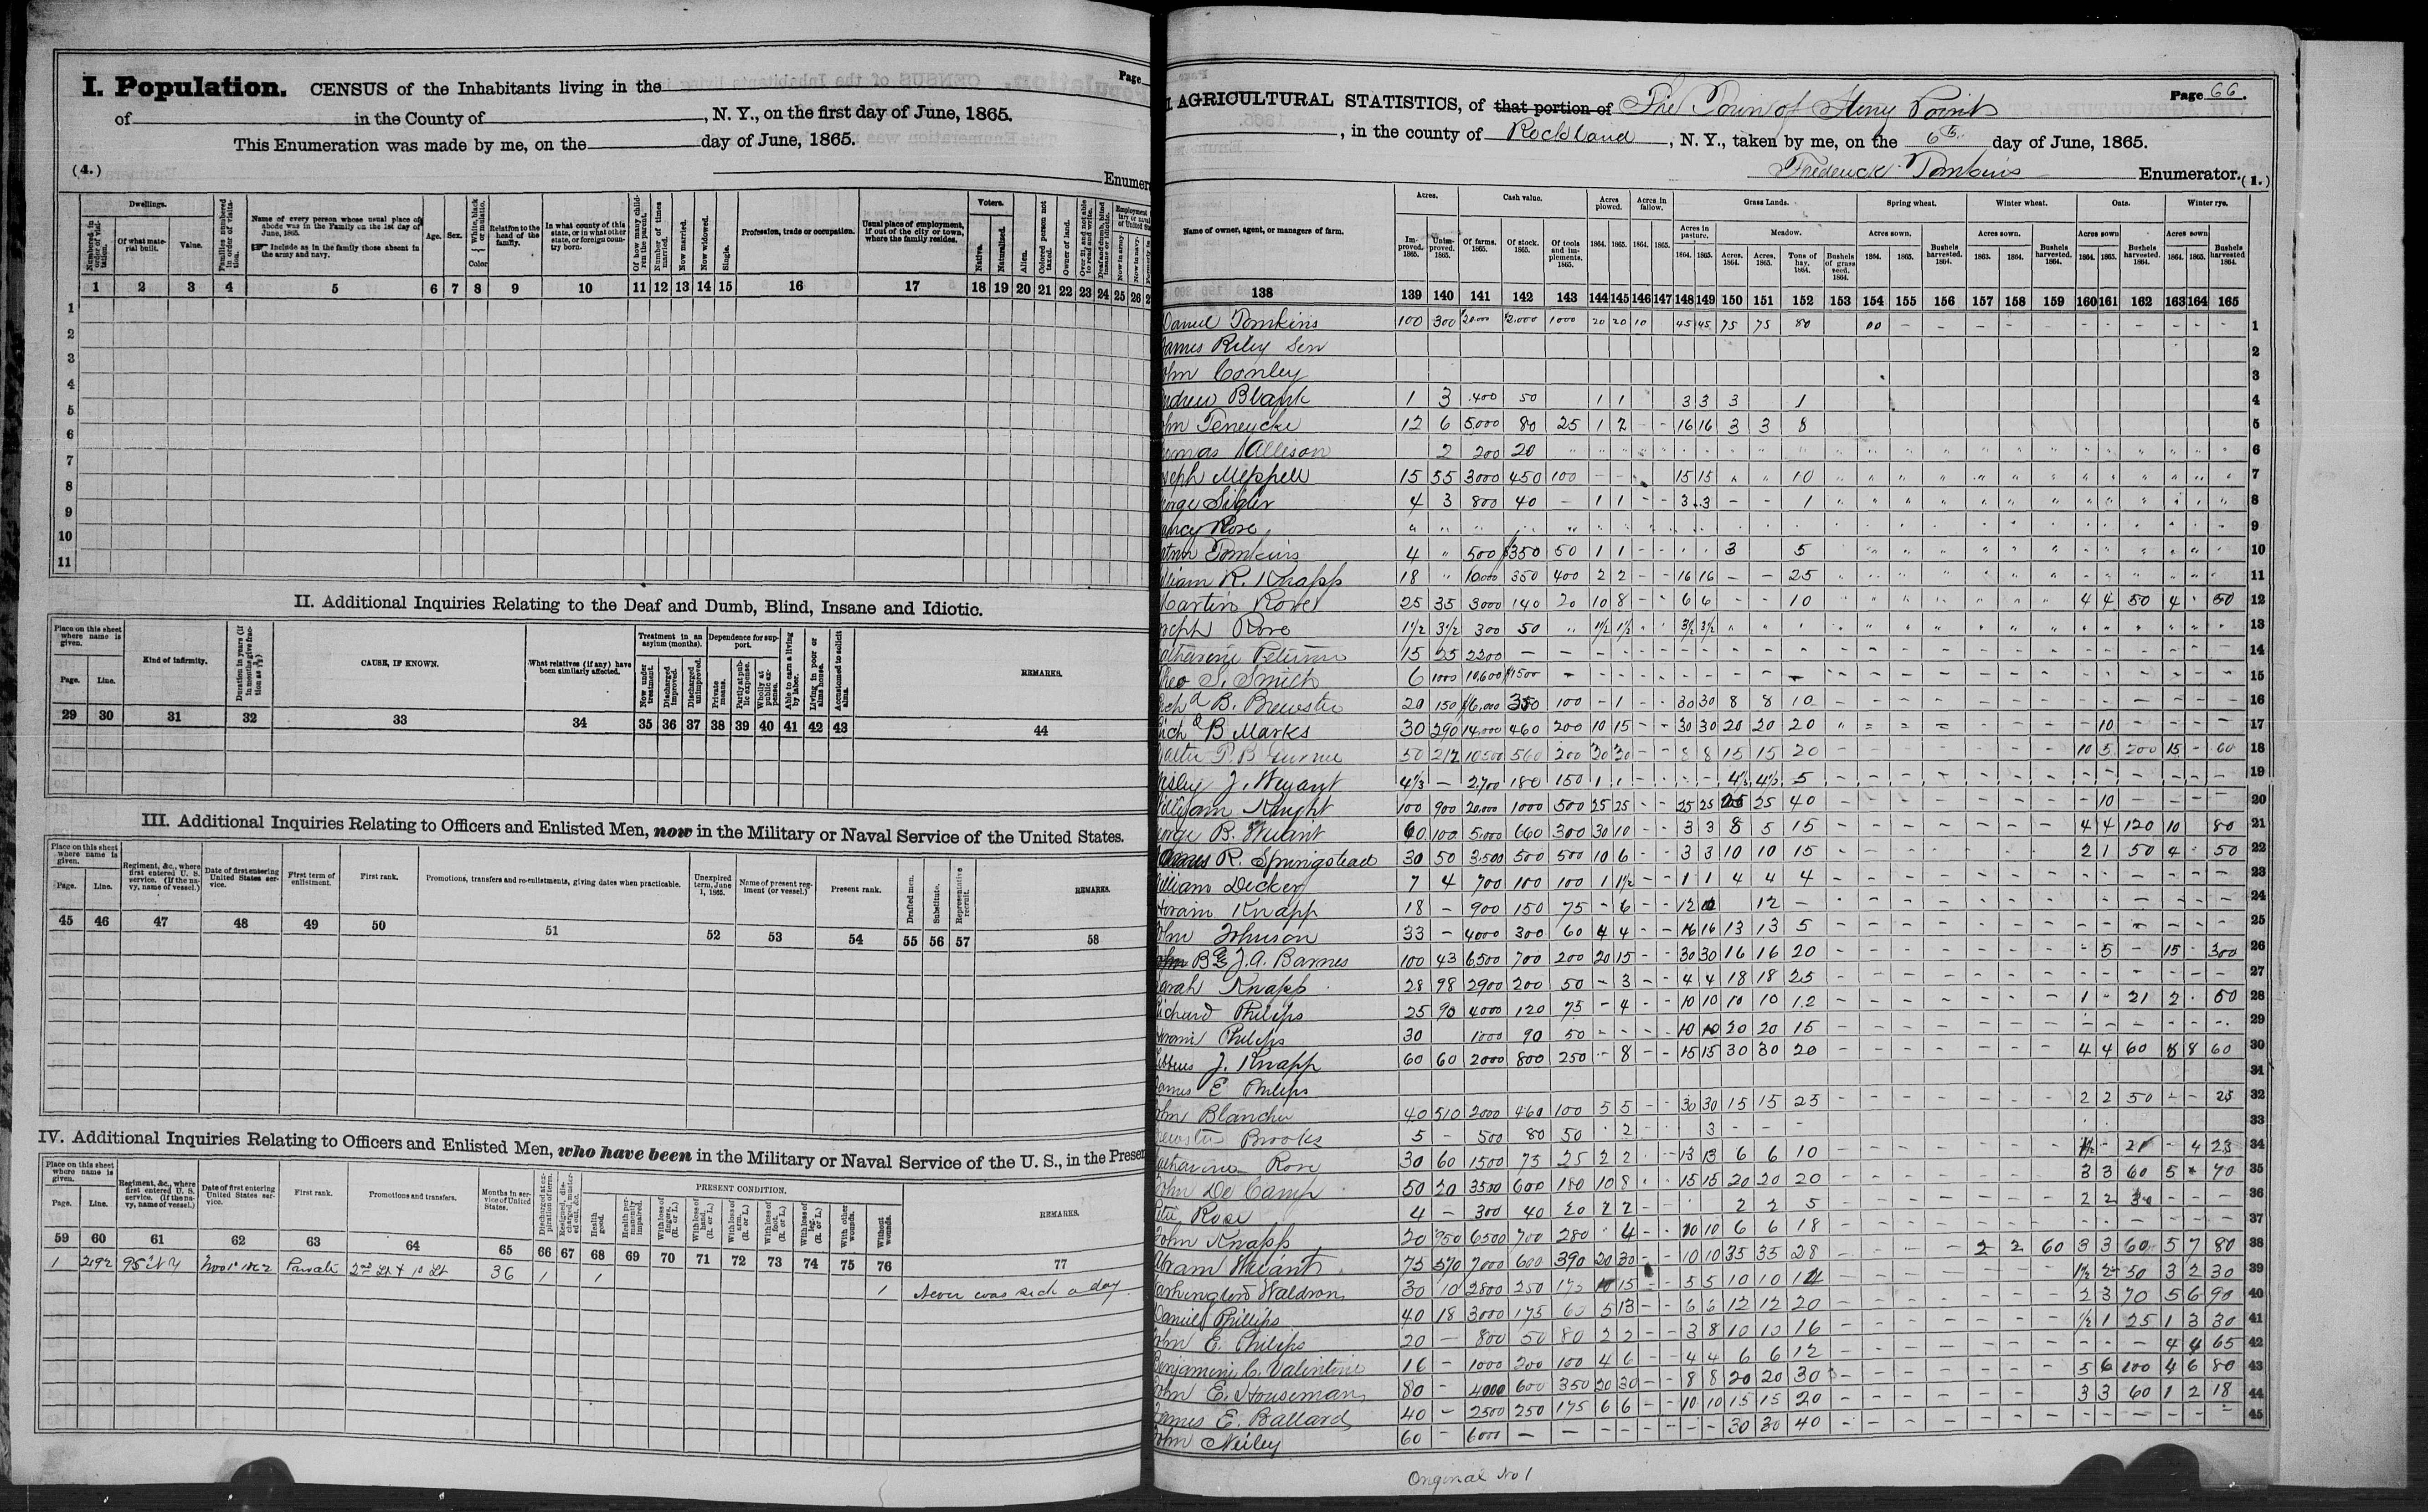 Page
I. Population. CENSUS of the Inhabitants living in the
of in the County of , N. Y., on the first day of June, 1865.
This Enumeration was made by me, on the day of June, 1865.
(4.)
Enumer
Dwellings.
Numbered, in order of visitation.
Of what material built.
Value.
Families numbered in order of visitation.
Name of every person whose usual place of abode was in the Family on the 1st day of June, 1865.
Include as in the family those absent in the army and navy.
Age.
Sex.
White, black or mulatto.
Color
Relation to the head of the family.
In what county of this state, or in what other state, or foreign country born.
Of how many children the parent.
Number of times married.
Now married.
Now widowed.
Single.
Profession, trade or occupation.
Usual place of employment, if out of the city or town, where the family resides.
Voters.
Native.
Naturalized.
Alien.
Colored person not taxed.
Owner of land.
Over 21, and not able to read and write.
Deaf and dumb, blind insane or idiotic.
Now in army.
Now in navy.
1 2 3 4 5 6 7 8 9 10 11 12 13 14 15 16 17 18 19 20 21 22 23 24 25 26
1
2
3
4
5
6
7
8
9
10
11
II. Additional Inquiries Relating to the Deaf and Dumb, Blind, Insane and Idiotic.
Place on this sheet where name is given.
Page. Line.
Kind of infirmity.
CAUSE, IF KNOWN.
What relatives (if any) have been similarly affected.
Treatment in an asylum (months).
Now under treatment.
Discharged improved.
Discharged unimproved.
Dependence for support.
Private means.
Partly at public expense.
Wholly at public expense.
Able to earn a living by labor.
Living in poor or alms house.
Accustomed to solicit alms.
REMARKS.
29 30 31 32 33 34 35 36 37 38 39 40 41 42 43 44
III. Additional Inquiries Relating to Officers and Enlisted Men, now in the Military or Naval Service of the United States.
Place on this sheet where name is given.
Page. Line.
Regiment, &c., where first entered U. S. service. (If the navy, name of vessel.)
Date of first entering United States service.
First term of enlistment.
First rank.
Promotions, transfers and re-enlistments, giving dates when practicable.
Unexpired term, June 1, 1865.
Name of present regiment (or vessel.)
Present rank.
Drafted men.
Substitute.
Representative recruit.
REMARKS.
45 46 47 48 49 50 51 52 53 54 55 56 57 58
IV. Additional Inquiries Relating to Officers and Enlisted Men, who have been in the Military or Naval Service of the U. S., in the Presen
Place on this sheet where name is given.
Page. Line.
Regiment, &c., where first entered U. S. service. (If the navy, name of vessel.)
Date of first entering United States service.
First rank.
Promotions and transfers.
Months in service of United States.
Discharged at expiration of term.
Resigned, discharged, mustered out, &c.
PRESENT CONDITION.
Health good.
Health permanently impaired.
With loss of fingers. (R. or L.)
With loss of hand. (R. or L.)
With loss of arm. (R. or L.)
With loss of foot. (R. or L.)
With loss of leg. (R. or L.)
With other wounds.
Without wounds.
REMARKS.
59 60 61 62 63 64 65 66 67 68 69 70 71 72 73 74 75 76 77
1 292 95th N Y Nov 1st 1862 Private 2nd Lt + 1st Lt 36 1 1
1 Never was sick a day
Page 66.
AGRICULTURAL STATISTICS, of that portion of The Town of Stony Point
, in the county of Rockland, N. Y., taken by me, on the 6th day of June, 1865.
Frederick Tomkins Enumerator. (1.)
Name of owner, agent, or managers of farm.
Acres.
Improved. 1865.
Unimproved. 1865.
Cash value.
Of farms. 1865.
Of stock. 1865.
Of tools and implements. 1865.
Acres plowed.
1864. 1865.
Acres in fallow.
1864. 1865.
Grass Lands.
Acres in pasture.
1864. 1865.
Meadow.
Acres. 1864.
Acres. 1865.
Tons of hay. 1864.
Bushels of grass seed. 1864.
Spring wheat.
Acres sown.
1864. 1865.
Bushels harvested 1864.
Winter wheat.
Acres sown.
1863. 1864.
Bushels harvested 1864.
Oats.
Acres sown
1864. 1865.
Bushels harvested. 1864.
Winter rye.
Acres sown
1864. 1865.
Bushels harvested 1864.
138 139 140 141 142 143 144 145 146 147 148 149 150 151 152 153 154 155 156 157 158 159 160 161 162 163 164 165
Daniel Tomkins 100 300 2000 1000 20 20 10 45 45 75 75 80 1
James Riley Sen 2
John Conley 3
Andrew Blank 1 3 400 50 1 1 3 3 3 1 4
John Teneycke 12 6 5000 80 25 1 2 - - 16 16 3 3 8 5
Thomas Allison 2 200 20 6
Joseph 15 55 3000 450 100 - - 15 15 10 7
George Sigler 4 3 800 40 - 1 1 - - 3 3 - - 1 8
Nancy Rose 9
Tomkins 4 " 500 350 50 1 1 - - 3 5 10
William R. Knapp 18 " 10000 350 400 2 2 - - 16 16 - - 25 11
Martin Rose 25 35 3000 140 20 10 8 - 6 6 - - 10 4 4 50 4 50 12
Joseph Rose 1½ 3½ 300 50 " 1½ 1½ 3½ 3½ 13
Catharine 15 25 2200 - - 14
Theo S. Smith 6 1000 10,600 $1500 15
Richd B. Brewster 20 150 16,000 350 100 - 1 - - 30 30 8 8 10 16
Richd B Marks 30 290 14,000 460 200 10 15 - - 30 30 20 20 20 10 17
Walter P. B Gurnee 50 217 10500 560 200 30 30 - - 8 8 15 15 20 10 5 200 15 - 60 18
J. Weyant - 2,700 180 150 1 1 5 19
William Knight 100 900 20,000 1000 500 25 25 - - 25 25 25 25 40 - 10 20
George B. Weiant 60 100 5,000 660 300 30 10 - - 3 3 5 5 15 4 4 120 10 80 21
James R. Springstead 30 50 3500 500 500 10 6 - - 3 3 10 10 15 2 1 50 4 50 22
William Decker 7 4 700 100 100 1 1½ - - 1 1 4 4 4 23
Hiram Knapp 18 - 900 150 75 - 6 - - 12 12 - 24
John Johnson 33 - 4000 300 60 4 4 - - 16 16 13 13 5 25
B & J. A. Barnes 100 43 6500 700 200 20 15 - - 30 30 16 16 20 - 5 - 15 - 300 26
Sarah Knapp 28 98 2900 200 50 - 3 - - 4 4 18 18 25 27
Richard Philips 25 90 4000 120 75 - 4 - - 10 10 10 10 12 1 - 21 2 50 28
Philips 30 1000 90 50 - - - - 10 10 20 20 15 29
J. Knapp 60 60 2000 800 250 - 8 - - 15 15 30 30 20 4 4 60 8 8 60 30
James E Philips 31
John Blanche 40 510 2000 460 100 5 5 - - 30 30 15 15 25 2 2 50 - - 25 32
Brewster Brooks 5 - 500 80 50 2 3 - - - 33
Catharine Rose 30 60 1500 75 25 2 2 - 13 13 6 6 10 1½ - 21 - 4 25 34
John De Camp 50 20 3500 600 180 10 8 15 15 20 20 20 3 3 60 5 70 35
Peter Rose 4 - 300 40 20 2 2 - 2 2 5 2 2 - - - 36
John Knapp 20 950 6500 700 280 4 - - 10 10 6 6 18 37
Abram Weiant 75 570 7000 600 390 20 30 - - 10 10 35 35 28 2 2 60 3 3 60 5 7 80 38
Washington Waldron 30 10 2800 250 175 10 15 - - 5 5 10 10 14 1½ 2 50 3 2 30 39
Daniel Phillips 40 18 3000 175 60 5 13 - - 6 6 12 12 20 2 3 70 5 6 90 40
John E. Philips 20 - 800 50 80 2 2 - - 3 8 10 10 16 ½ 1 25 1 3 30 41
Benjamin C. Valentine 16 - 1000 200 100 4 6 - - 4 4 6 6 12 - - - 4 4 65 42
John E. Houseman 80 - 4000 600 350 20 30 - - 8 8 20 20 30 5 6 100 4 6 80 43
James E. Ballard 40 - 2500 250 175 6 6 - - 10 10 15 15 20 3 3 60 1 2 18 44
John Neiley 60 - 6000 - - - - - - - - 30 30 40 45
Original No 1